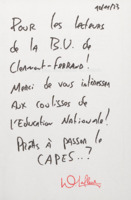 Pour les lecteurs
de la B.U. de
Clermont-Ferrand !...
Merci de vous intéresser
aux coulisses de
l'Education Nationale !
Prêts à passer le
CAPES..?